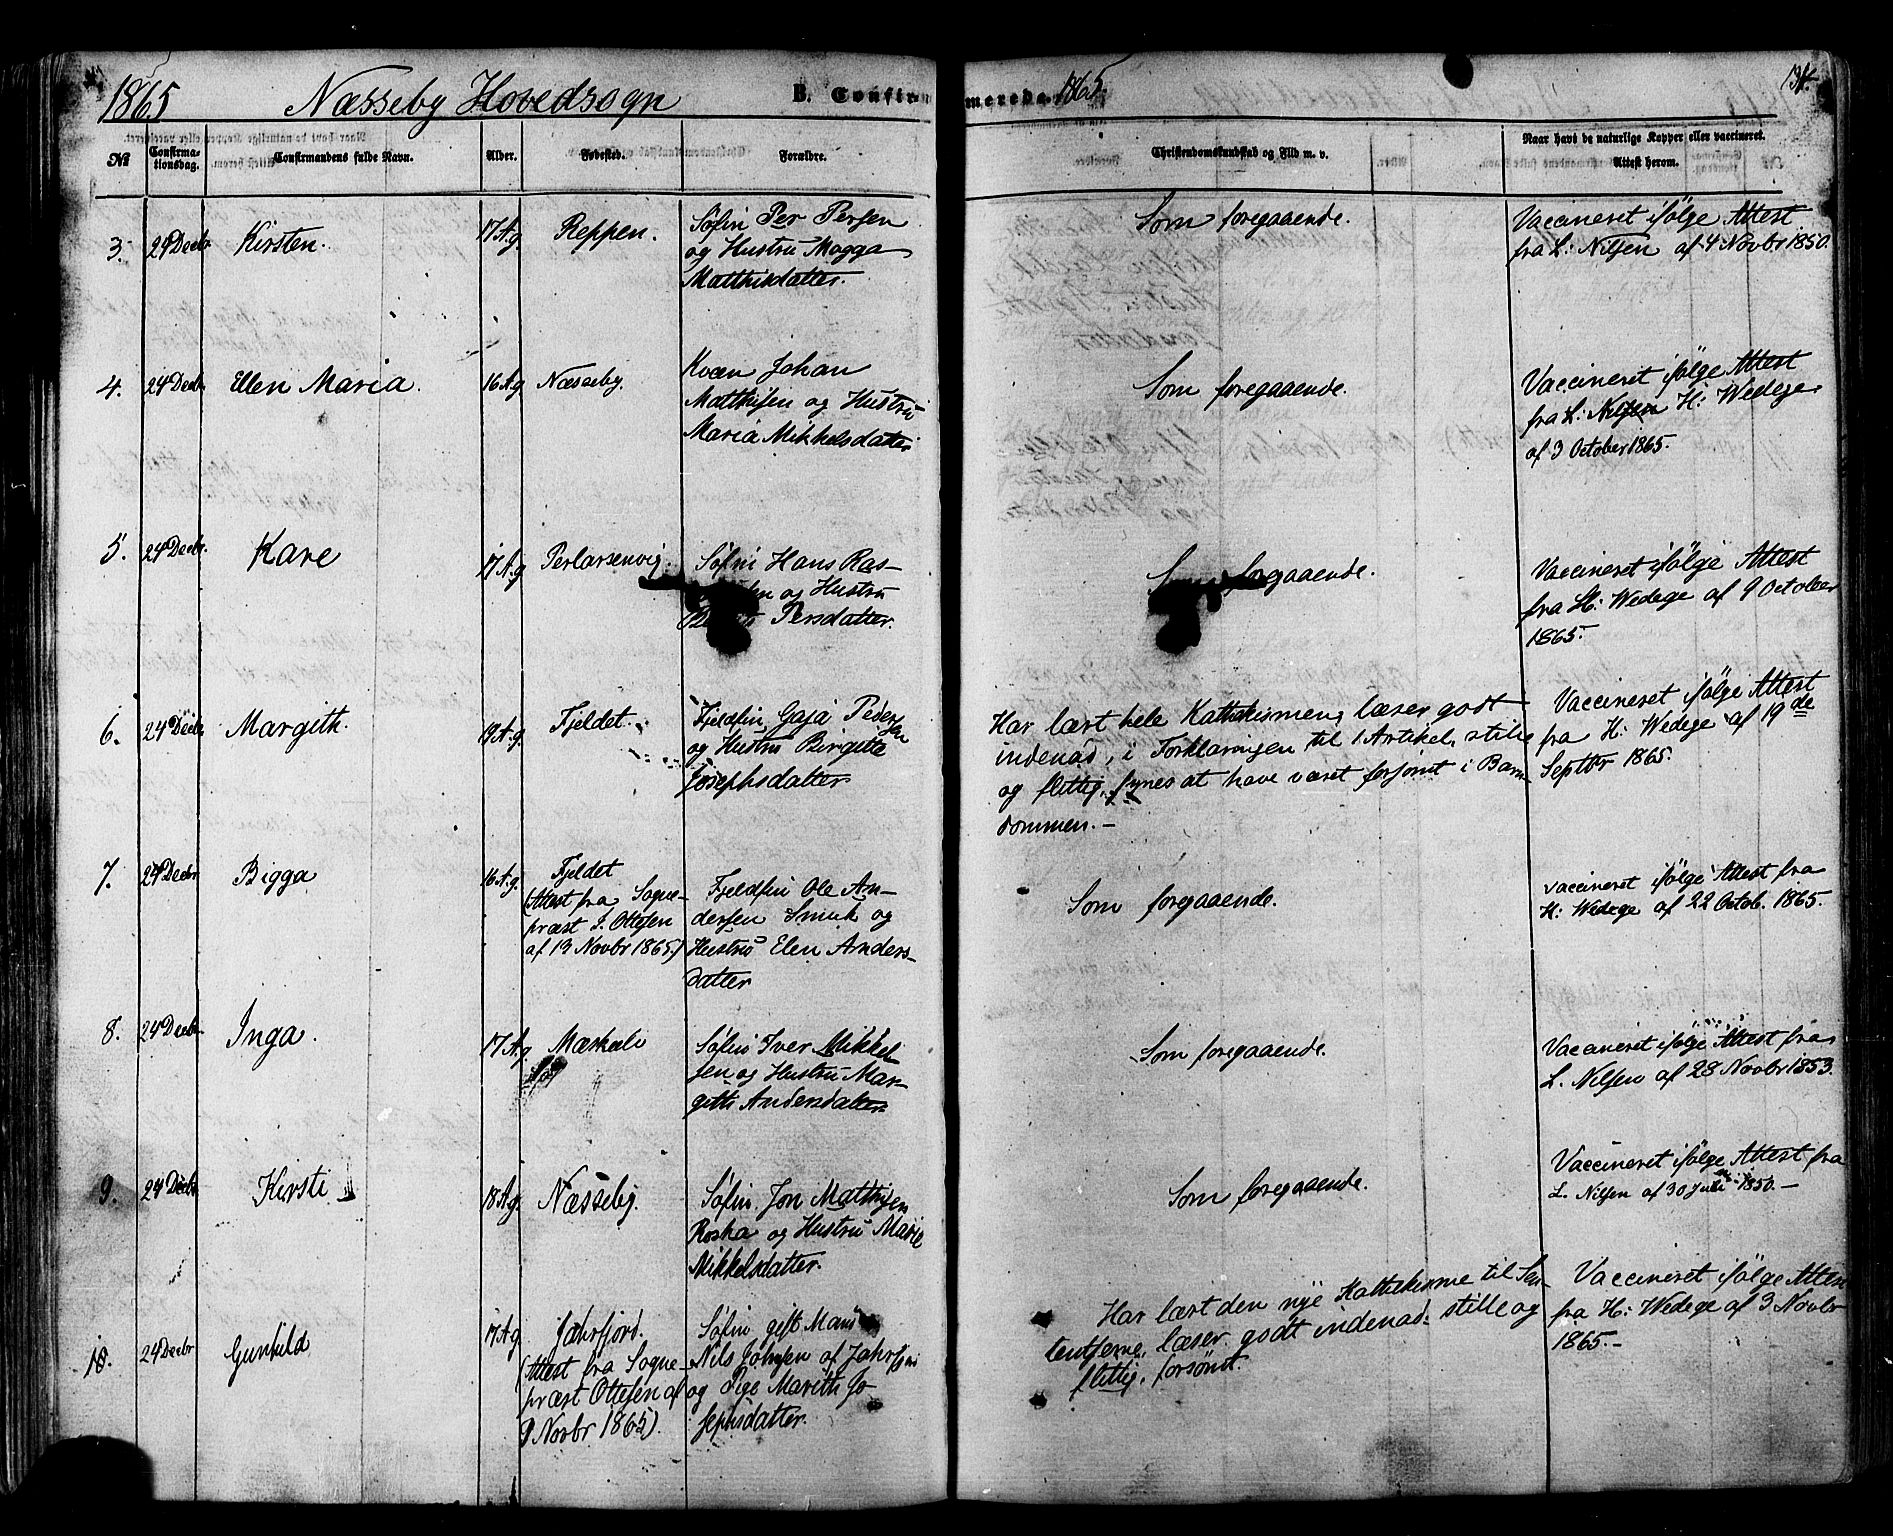 1865 Næsseby Hovedsogn B. Confirmerede. 1865 134.
№ Confirmationsdag. Confirmandens fulde Navn. Alder. Fødested. Forældre. Christendomskundskab og Flid m. v. Naar havt de naturlige Kopper eller vaccineret. Attest herom.
3. 24 Decbr Kirsten. 17 A.g. Reppen. Søfin Per Persen Som foregaaende. Vaccineret ifølge Attest
og Hustru Magga fra L: Nilsen af 4 Novbr 1850.
Matthisdatter.
4. 24 Decbr Ellen Maria. 16 A.g. Næsseby. Kvæn Johan Som foregaaende. Vaccineret ifølge Attest
Matthisen og Hustru fra L: Nilsen H: Wedege
Maria Mikkelsdatter af 3 October 1865.
5. 24 Decbr. Kare 17 A.g. Perlarsenvig. Søfin Hans Ras- foregaaende. Vaccineret ifølge Attest
og Hustru fra H: Wedege af 9 October
Persdatter. 1865.
6. 24 Decbr Margith. 19 A.g. Fjeldet. Fjeldfin Gaja Pedersen Har lært hele Kathekismen, læser godt Vaccineret ifølge Attest
og Hustru Birgitte indenad, i Forklaringen til 1 Artikel, stille fra H: Wedege af 19de
Josephsdatter og flittig, synes at have været forsømt i Barn- Septbr 1865.
dommen. -
7. 24 Decbr Bigga 16 A.g. Fjeldet Fjeldfin Ole An- Som foregaaende. Vaccineret ifølge Attest fra
(Attest fra Sogne- dersen Smuk og H: Wedege af 22 Octob. 1865.
præst J. Ottesen Hustru Elen Anders-
af 13 Novbr 1865) datter
8. 24 Decbr Inga. 17 A.g. Mæskeli Søfin Iver Mikkel Som foregaaende. Vaccineret ifølge Attest fra
sen og Hustru Mar- L. Nilsen af 28 Novbr 1853.
githe Andersdatter
9. 24 Decbr Kirsti 18 A.g. Næsseby. Søfin Jon Matthisen Som foregaaende. Vaccineret ifølge Attest fra
Roska og Hustru Marie L. Nilsen af 30 Juli 1850. -
Mikkelsdatter.
10. 24 Decbr Gunhild 17 A.g. Jahrfjord. Søfin gift Mand Har lært den nye Kathekisme til Sa- Vaccineret ifølge Attest
(Attest fra Sogne- Nils Johnsen af Jahrfjord læser godt indenad. stille og fra H: Wedege af 3 Novbr
præst Ottesen af og Pige Marith Jo flittig, forsømt. 1865. -
9 Novbr 1865). sephsdatter.